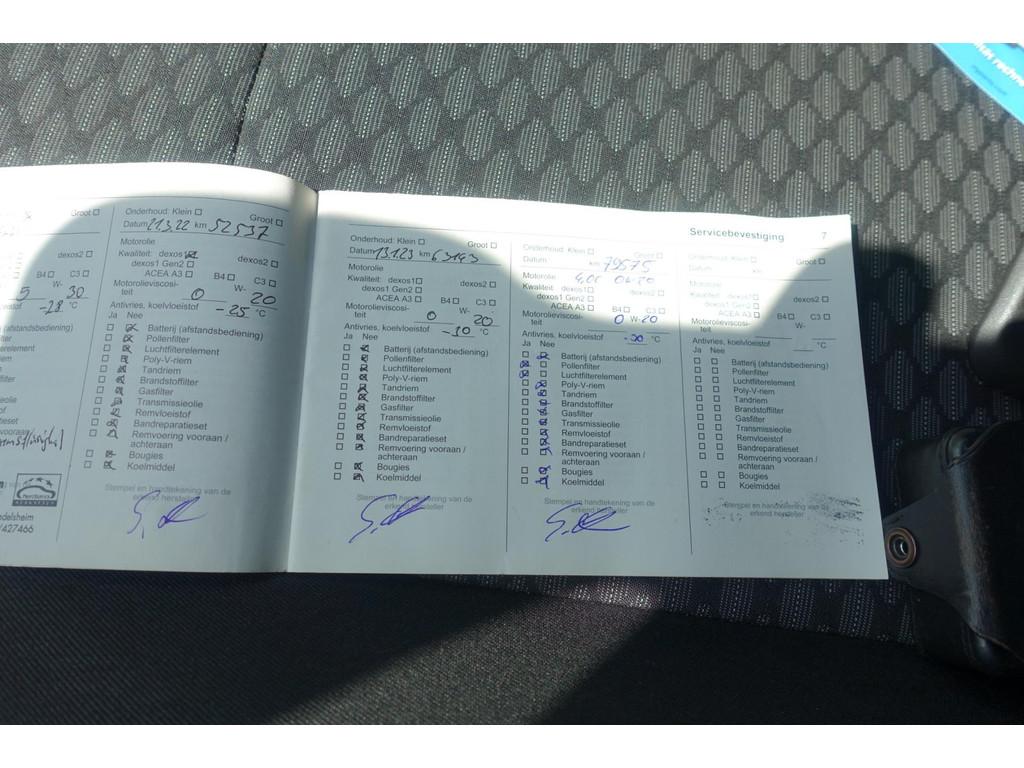 Groot ☐
dexos2 ☐
B4 ☐ C3 ☐
W-
5 30
-28 °C
(afstandsbediening)
filterelement
olie
427466
Onderhoud: Klein ☐ Groot ☐
Datum 21.3.22 km 52537
Motorolie
Kwaliteit: dexos1 ☒ dexos2 ☐
dexos1 Gen2 ☐
ACEA A3 ☐ B4 ☐ C3 ☐
Motorolieviscosi- W-
teit 0 20
Antivries, koelvloeistof -25 °C
Ja Nee
☐ ☒ Batterij (afstandsbediening)
☐ ☒ Pollenfilter
☐ ☒ Luchtfilterelement
☐ ☒ Poly-V-riem
☐ ☒ Tandriem
☐ ☒ Brandstoffilter
☐ ☒ Gasfilter
☐ ☒ Transmissieolie
☐ ☒ Remvloeistof
☐ ☒ Bandreparatieset
☐ ☒ Remvoering vooraan /
achteraan
☐ ☒ Bougies
☐ ☒ Koelmiddel
Stempel en handtekening van de
erkend hersteller
Servicebevestiging 7
Onderhoud: Klein ☐ Groot ☐
Datum 13.1.23 km 63143
Motorolie
Kwaliteit: dexos1 ☐ dexos2 ☐
dexos1 Gen2 ☐
ACEA A3 ☐ B4 ☐ C3 ☐
Motorolieviscosi- W-
teit 0 20
Antivries, koelvloeistof -30 °C
Ja Nee
☐ ☒ Batterij (afstandsbediening)
☐ ☒ Pollenfilter
☐ ☒ Luchtfilterelement
☐ ☒ Poly-V-riem
☐ ☒ Tandriem
☐ ☒ Brandstoffilter
☐ ☒ Gasfilter
☐ ☒ Transmissieolie
☐ ☒ Remvloeistof
☐ ☒ Bandreparatieset
☐ ☒ Remvoering vooraan /
achteraan
☐ ☒ Bougies
☐ ☒ Koelmiddel
Stempel en handtekening van de
erkend hersteller
Onderhoud: Klein ☐ Groot ☐
Datum km 79575
Motorolie
Kwaliteit: dexos1 ☐ dexos2 ☐
dexos1 Gen2 ☐
ACEA A3 ☐ B4 ☐ C3 ☐
Motorolieviscosi- 0 W-20
teit
Antivries, koelvloeistof -30 °C
Ja Nee
☐ ☒ Batterij (afstandsbediening)
☒ ☐ Pollenfilter
☒ ☐ Luchtfilterelement
☐ ☒ Poly-V-riem
☐ ☒ Tandriem
☐ ☒ Brandstoffilter
☐ ☒ Gasfilter
☐ ☒ Transmissieolie
☐ ☒ Remvloeistof
☐ ☒ Bandreparatieset
☐ ☒ Remvoering vooraan /
achteraan
☐ ☒ Bougies
☐ ☒ Koelmiddel
Stempel en handtekening van de
erkend hersteller
Onderhoud: Klein ☐ Groot ☐
Datum km
Motorolie
Kwaliteit: dexos1 ☐ dexos2 ☐
dexos1 Gen2 ☐
ACEA A3 ☐ B4 ☐ C3 ☐
Motorolieviscosi- W-
teit
Antivries, koelvloeistof °C
Ja Nee
☐ ☐ Batterij (afstandsbediening)
☐ ☐ Pollenfilter
☐ ☐ Luchtfilterelement
☐ ☐ Poly-V-riem
☐ ☐ Tandriem
☐ ☐ Brandstoffilter
☐ ☐ Gasfilter
☐ ☐ Transmissieolie
☐ ☐ Remvloeistof
☐ ☐ Bandreparatieset
☐ ☐ Remvoering vooraan /
achteraan
☐ ☐ Bougies
☐ ☐ Koelmiddel
Stempel en handtekening van de
erkend hersteller